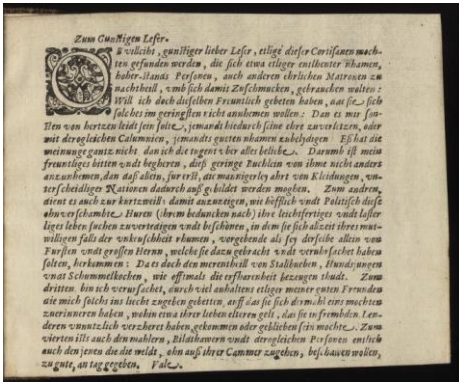 Zum Gunstigen Leser.
villeiht, gunstiger lieber Leser, etlige dieser Cortisanen moch-
ten gefunden werden, die sich etwa etliger entlhenter nhamen,
hoher-stands Personen, auch anderen ehrlichen Matronen zu
nachtheill, vmb sich damit Zuschmucken, gebrauchen wolten:
Will ich doch dieselben Freuntlich gebeten haben, das sie sich
solches im geringsten nicht annhemen wollen: Dan es mir son-
sten von hertzen leidt sein solte, jemands hiedurch seine ehre zuverletzen, oder
mit derogleichen Calumnien, jemands gutten nhamen zubelydigen Eß hat die
meinunge gantz nicht dan ich die tugent vber alles beliebe. Darumb ist mein
freuntliges bitten vndt begheren, dieß geringe Buchlein von ihme nicht anders
anzunhemen, dan daß allein, fur erst, die mannigerley ahrt von Kleidungen, vn-
terscheidliger Nationen dadurch auß gebildet werden moghen. Zum andren,
dient es auch zur kurtzweill: damit anzuzeigen, wie höfflich vndt Politisch diese
ohnverschambte Huren (ihrem beduncken nach) ihre leichtfertiges vndt laster
liges leben suchen zuvertedigen vndt beschönen, in dem sie sich allzeit ihres mut-
willigen falls der vnkeuschheit rhumen, vorgebende als sey derselbe allein von
Fursten vndt grossen Herrn, welche sie dazu gebracht vndt verursachet haben
solten, herkommen: Da es doch den merentheill von Stallbuben, Hundsjungen
vndt Schummelkochen, wie offtmals die erfharenheit bezeugen thudt. Zum
dritten bin ich verursachet, durch viel anhaltens etliger meiner guten Freunden
die mich solchs ins liecht zugeben gebetten, auff das sie sich dermahl eins mochten
zuerinneren haben, wohin etwa ihrer lieben elteren gelt, das sie in frembden Len-
deren vnnutzlich verzheret haben, gekommen oder geblieben sein mochte. Zum
vierten ists auch den mahlern, Bildthawern vndt derogleichen Personen entlich
auch den jenen die die weldt, ohn auß ihrer Cammer zugehen, beschawen wollen,
zu gute, an tag gegeben. Vale.